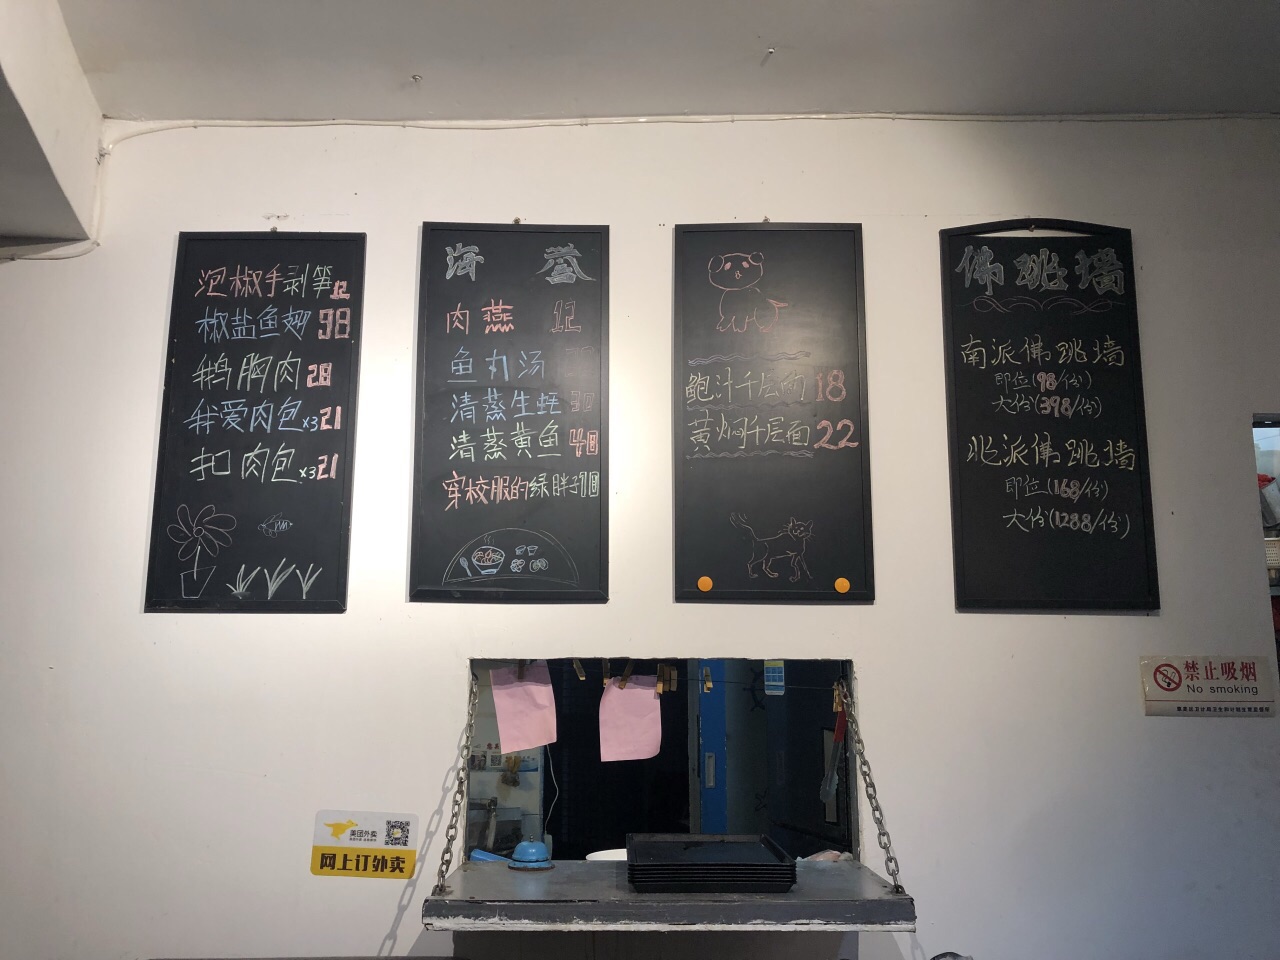 泡椒手剥笋12
椒盐鱼翅98
鹅胸肉28
我爱肉包x3 21
扣肉包x3 21
海誉
肉燕 12
鱼丸汤
清蒸生蚝 30
清蒸黄鱼 48
穿校服的绿胖子
鲍汁千层面 18
黄焖千层面 22
佛跳墙
南派佛跳墙
即位(98/份)
大份(398/份)
北派佛跳墙
即位(168/份)
大份(1288/份)
禁止吸烟
No smoking
美团外卖
网上订外卖